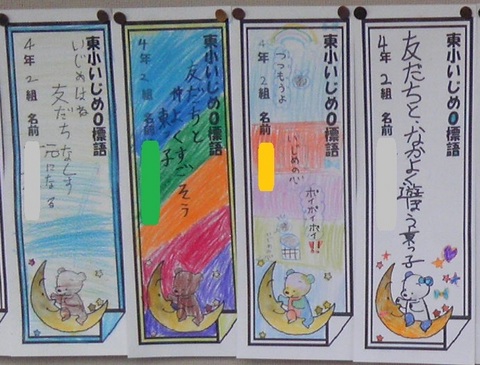 東小いじめ0標語
友だちと、なかよく遊ぼう東っ子
4年2組 名前
東小いじめ0標語
つつもうよ
いじめの心
ポイポイポイ!!
4年2組 名前
東小いじめ0標語
友だちと
仲よくすごそう
東っ子
4年2組 名前
東小いじめ0標語
いじめはね
友だちなくす
元になる
4年2組 名前